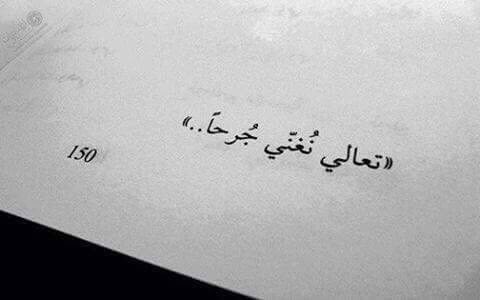 «تعالي نُغنّي جُرحاً..»
150